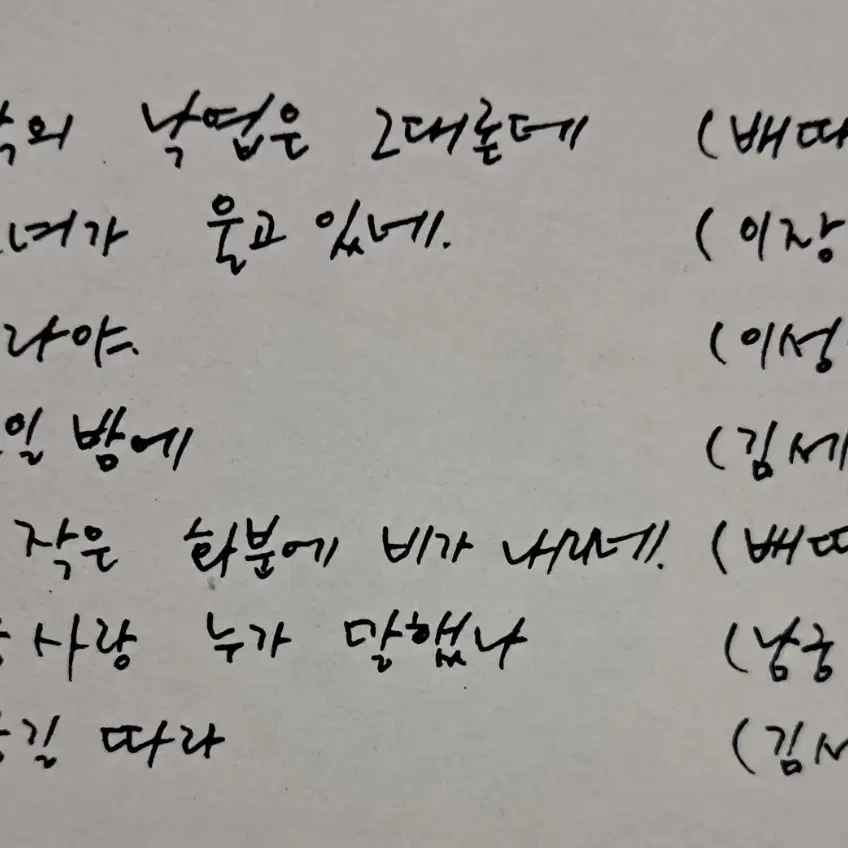 낙엽은 그대론데 (배따
울고 있네. (이장
라야. (이성
일 밤에 (김세
작은 화분에 비가 내리네. (배따
사랑 누가 말했나 (남궁
길 따라 (김세